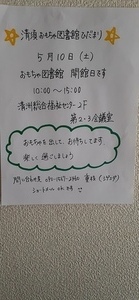 清須おもちゃ図書館ひだまり
5月10日(土)
おもちゃ図書館 開館日です
10:00〜15:00
清洲総合福祉センター2F
第2・3会議室
おもちゃを出して、お待ちしてます
楽しく過ごしましょう
問い合わせ先
ショートメール